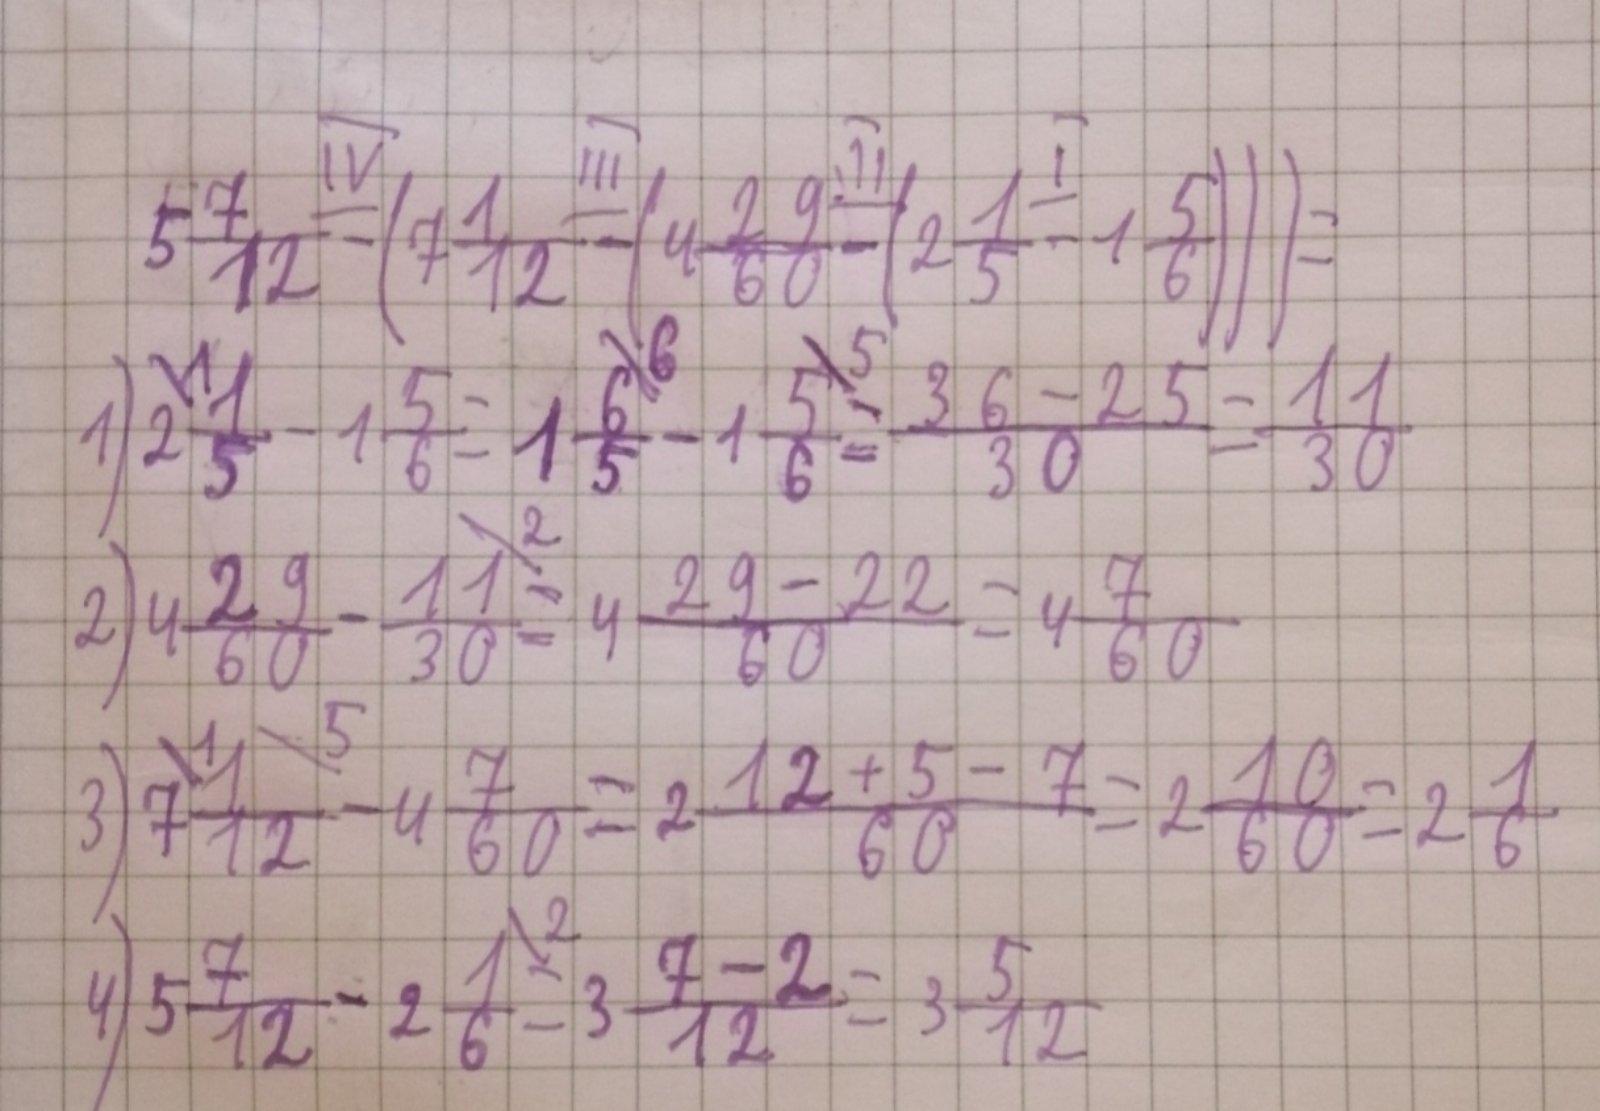 5 7/12 - (7 1/12 - (4 29/60 - (2 1/5 - 1 5/6))) =
IV III II I
1) 2 1/5 - 1 5/6 = 1 6/5 - 1 5/6 = (36 - 25)/30 = 11/30
2) 4 29/60 - 11/30 = 4 (29 - 22)/60 = 4 7/60
3) 7 1/12 - 4 7/60 = 2 (12 + 5 - 7)/60 = 2 10/60 = 2 1/6
4) 5 7/12 - 2 1/6 = 3 (7 - 2)/12 = 3 5/12